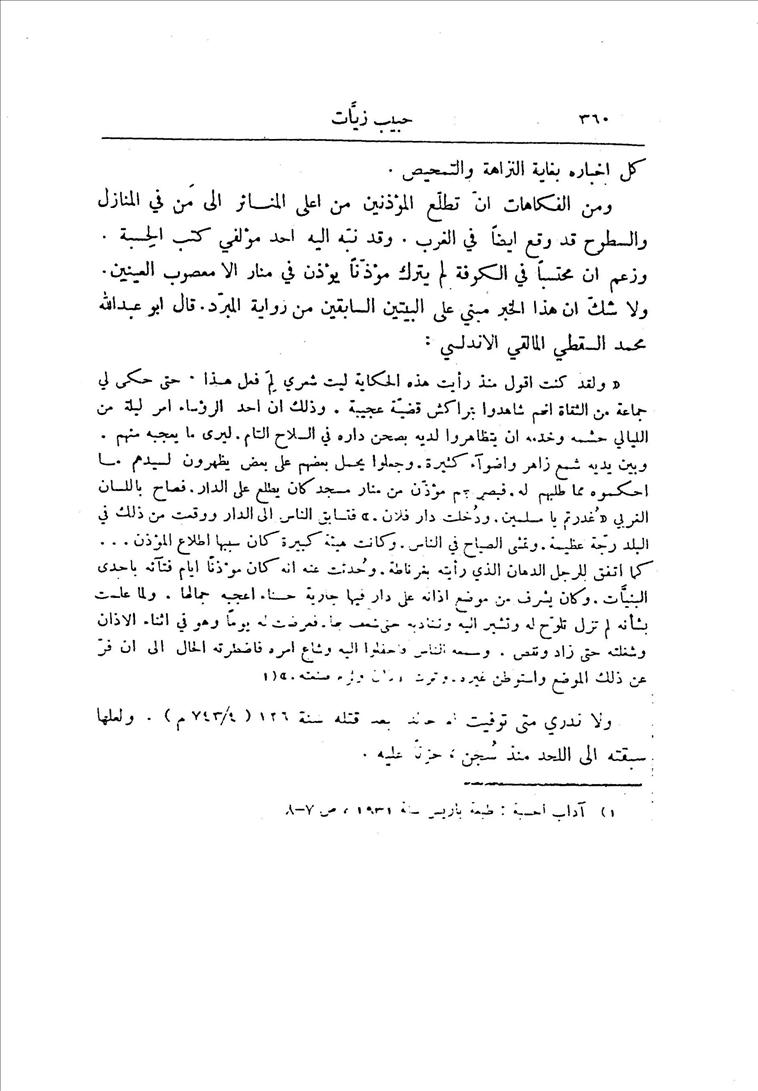 ٣٦٠ حبيب زيَّات
كل اخباره بغاية النزاهة والتمحيص .
ومن الفكاهات انّ تطلّع المؤذنين من اعلى المنائر الى مَن في المنازل
والسطوح قد وقع ايضاً في الغرب . وقد نبّه اليه احد مؤلفي كتب الحِسبة .
وزعم ان محتسباً في الكوفة لم يترك مؤذّناً يؤذن في منار الا معصوب العينين.
ولا شكّ ان هذا الخبر مبني على البيتين السابقين من رواية المبرّد. قال ابو عبدالله
محمد السقطي المالقي الاندلسي :
« ولقد كنت اقول منذ رأيت هذه الحكاية ليت شعري لِمَ فعل هذا . حتى حكى لي
جماعة من الثقاة انهم شاهدوا بمراكش قضيّة عجيبة . وذلك ان احد الرؤساء امر ليلة من
الليالي حشمه وخدمه ان يتظاهروا لديه بصحن داره في السلاح التام . ليرى ما يعجبه منهم .
وبين يديه شمع زاهر واضوآء كثيرة . وجعلوا يحمل بعضهم على بعض يظهرون لسيدهم ما
احكموه مما طلبهم له . فبصر بهم مؤذّن من منار مسجد كان يطلع على الدار . فصاح باللسان
الغربي « غُدرتم يا مسلمين . ودُخلت دار فلان . » فتسابق الناس الى الدار ووقعت من ذلك في
البلد رجّة عظيمة . وتمشّى الصياح في الناس . وكانت هيئة كبيرة كان سببها اطلاع المؤذن . . .
كما اتفق للرجل الدهان الذي رأيته بغرناطة . وحُدثت عنه انه كان مؤذنًا ايام فتآئه باحدى
البنيَّات . وكان يشرف من موضع اذانه على دار فيها جارية حسناء اعجبه جمالها . ولما علمت
بشأنه لم تزل تلوّح له وتشير اليه وتناديه حتى شغف بها . فعرضت له يوماً وهو في اثناء الاذان
وشغلته حتى زاد ونقص . وسمعه الناس فاحفلوا اليه وشاع امره فاضطرته الحال الى ان فرّ
عن ذلك الموضع واستوطن غيره . وترك صنعته . » (١
ولا ندري متى توفيت ام خالد بعد قتله سنة ١٢٦ ( ٧٤٣/٤ م ) . ولعلها
سبقته الى اللحد منذ سُجن ، حزناً عليه .
١) آداب الحسبة : طبعة باريس سنة ١٩٣١ ، ص ٧-٨